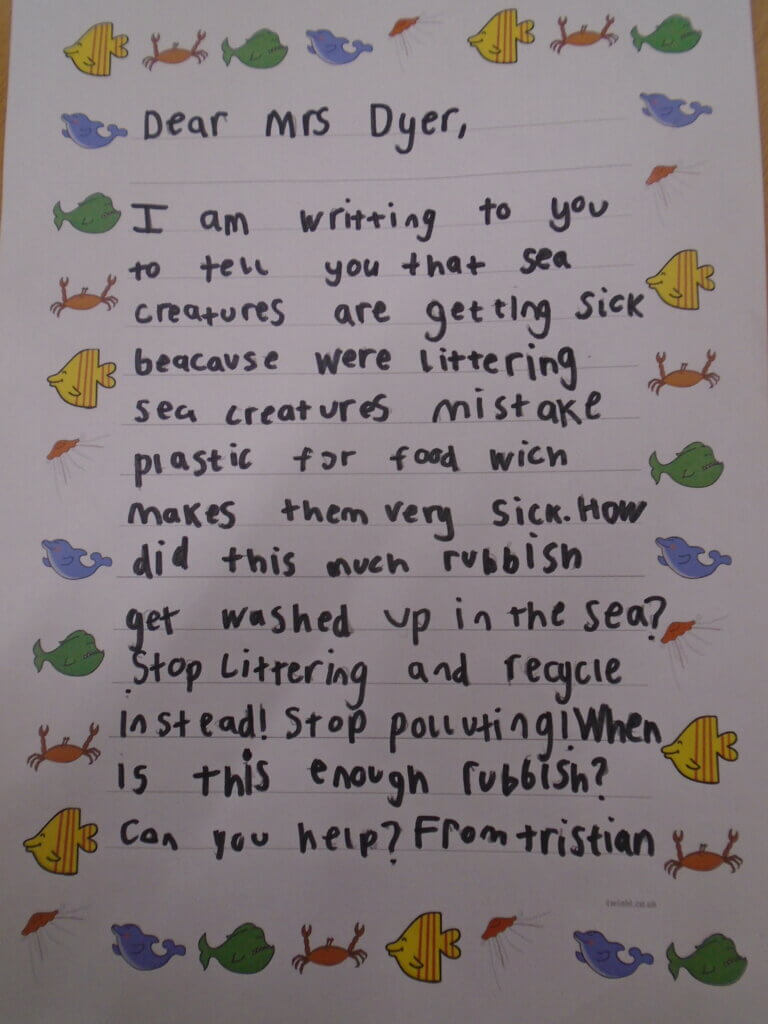 Dear Mrs Dyer,
I am writting to you
to tell you that sea
creatures are getting sick
beacause were littering
sea creatures mistake
plastic for food wich
makes them very sick. How
did this much rubbish
get washed up in the sea?
Stop Littering and recycle
instead! Stop polluting! When
is this enough rubbish?
Can you help? From tristian
twinkl.co.uk